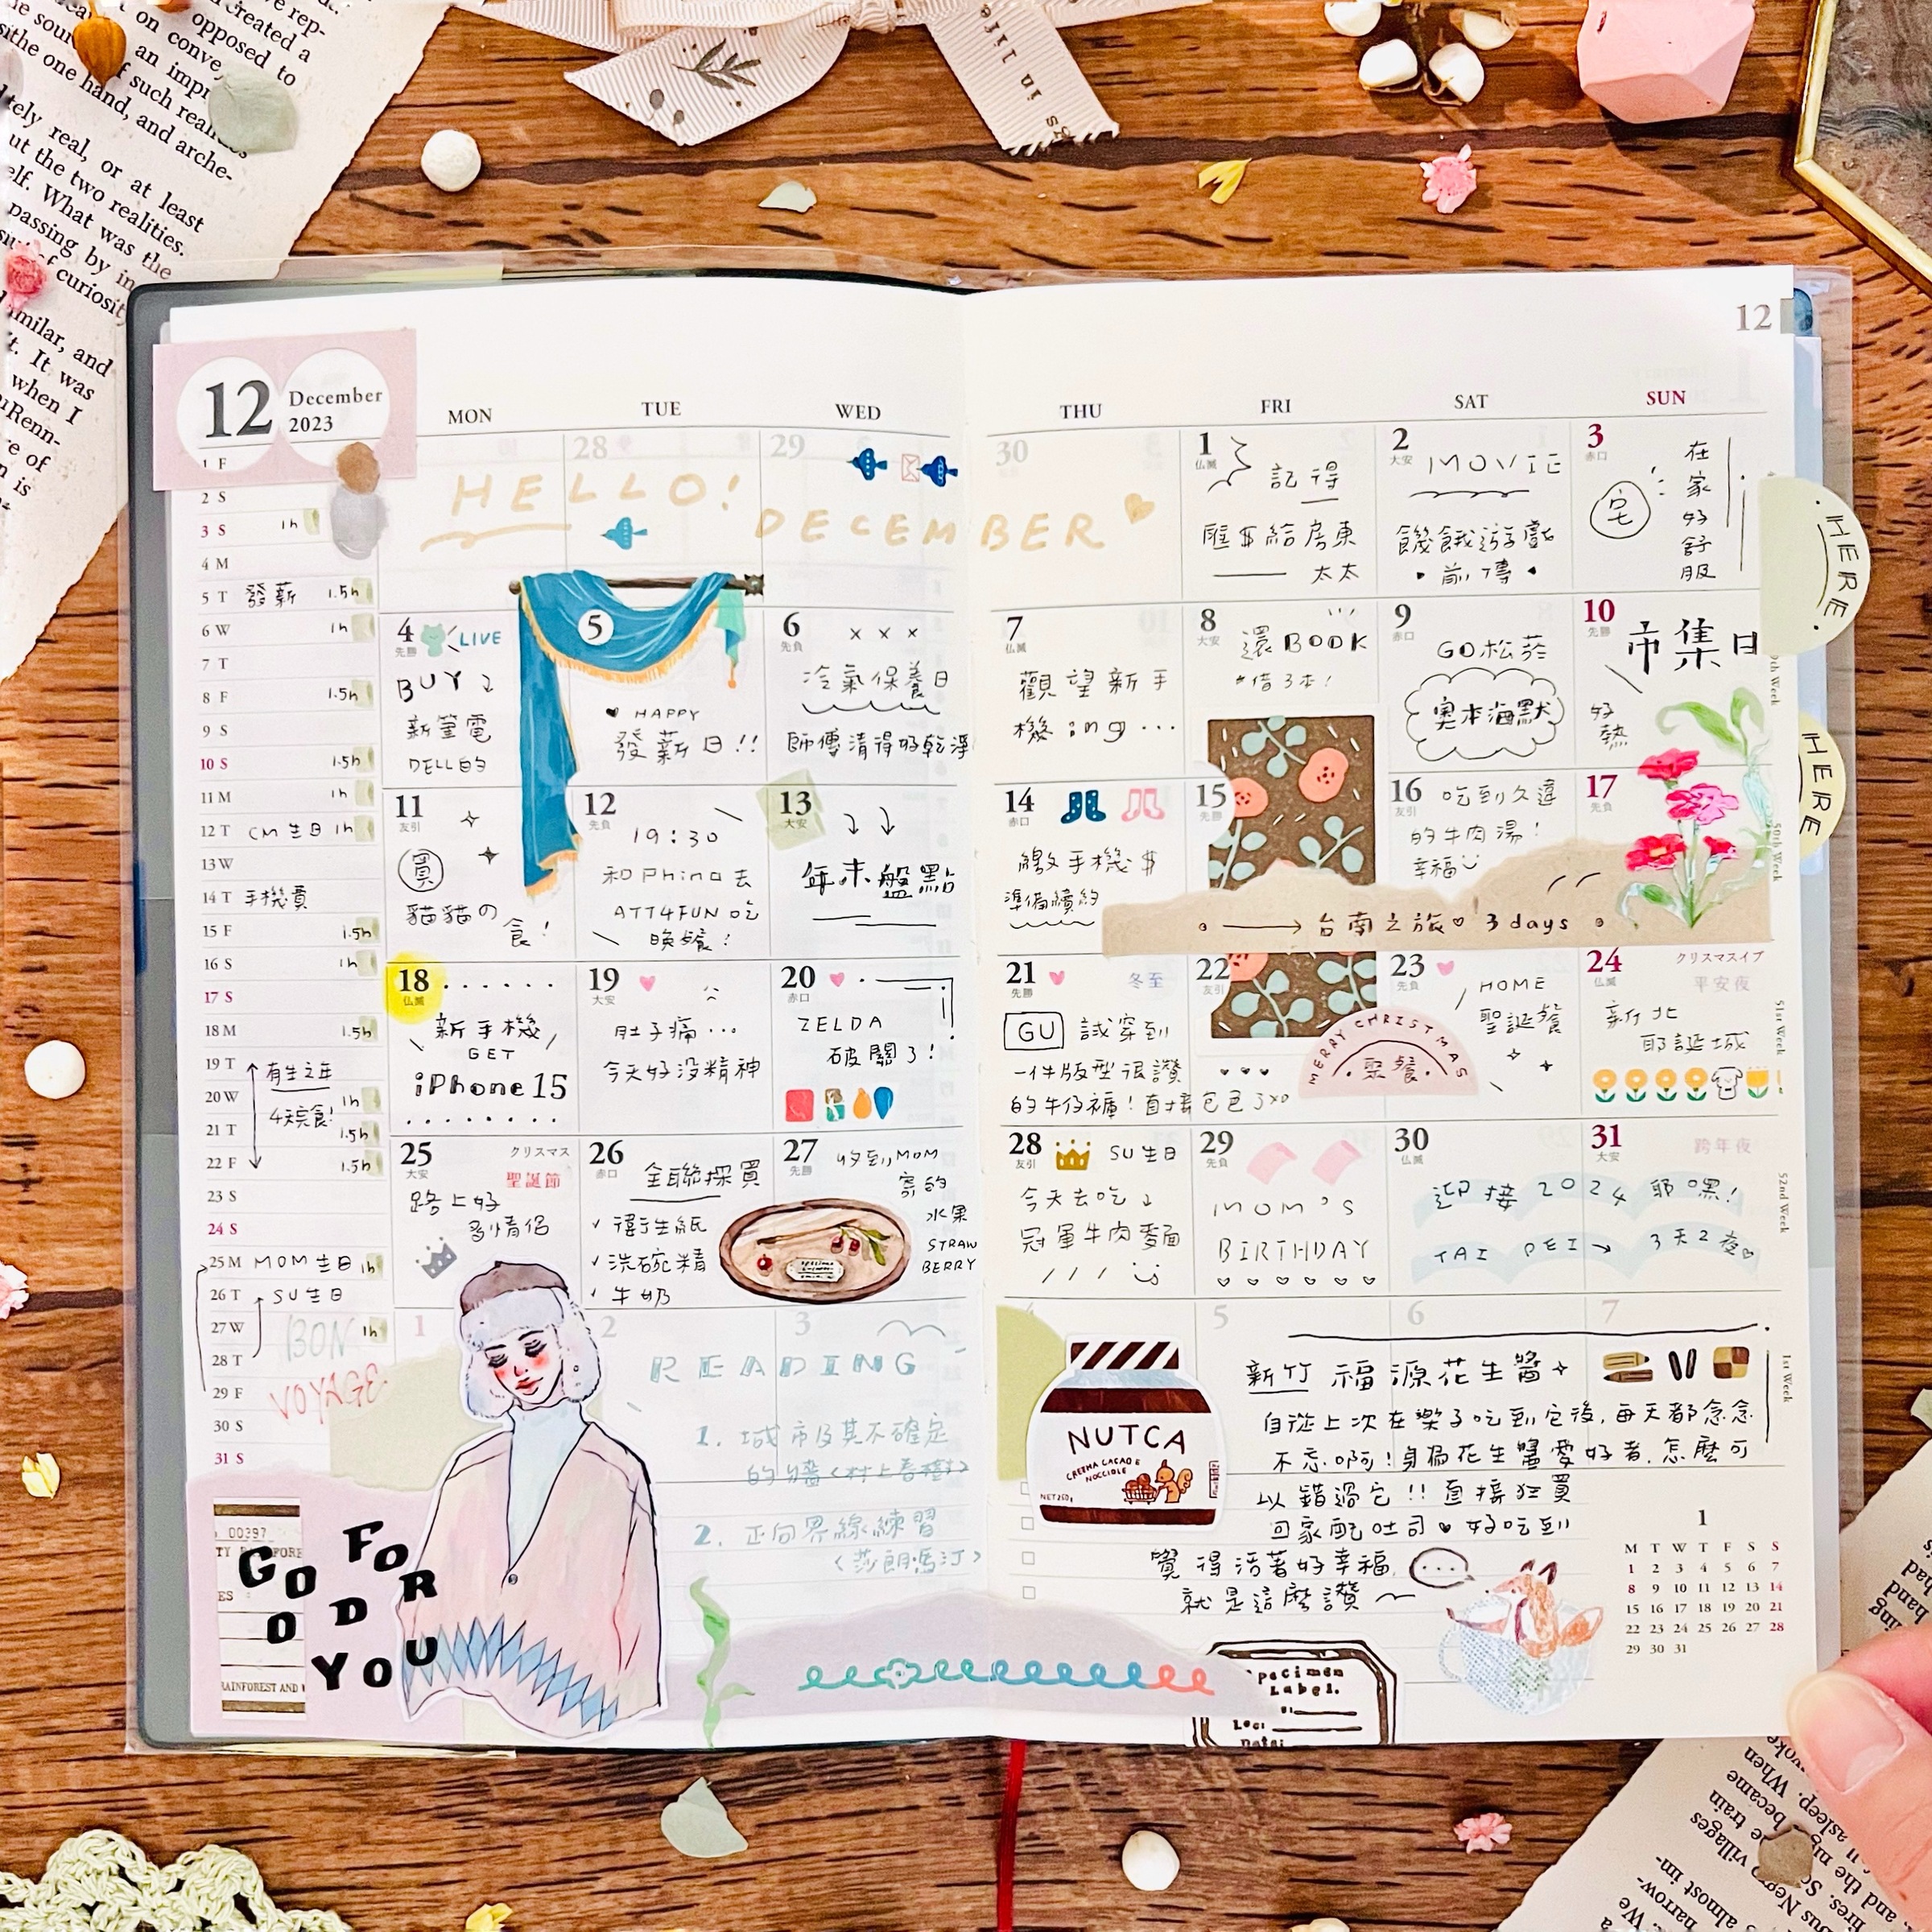 12
12
December
2023
MON
TUE
WED
THU
FRI
SAT
SUN
28
29
30
HELLO!
DECEMBER
1
仏滅
記得
匯$給房東
太太
2
大安
MOVIE
飢餓遊戲
前傳
3
赤口
宅
在家好舒服
HERE
HERE
4
先勝
LIVE
BUY
新筆電
DELL的
5
HAPPY
發薪日!!
6
先負
x x x
冷氣保養日
師傅清得好乾淨
7
仏滅
觀望新手
機ing...
8
大安
還BOOK
#借3本!
9
赤口
GO松菸
奧本海默
10
先勝
市集日
好熱
11
友引
買
貓貓の
食!
12
先負
19:30
和Phina去
ATT4FUN吃
晚餐!
13
大安
年末盤點
14
赤口
繳手機$
準備續約
15
先勝
16
友引
吃到久違
的牛肉湯!
幸福
17
先負
台南之旅♡ 3 days
18
仏滅
新手機
GET
iPhone 15
19
大安
肚子痛...
今天好沒精神
20
赤口
ZELDA
破關了!
21
先勝
冬至
GU 試穿到
一件版型很讚
的牛仔褲!直接包色了xD
22
友引
MERRY CHRISTMAS
聚餐
23
先負
HOME
聖誕餐
24
仏滅
クリスマスイブ
平安夜
新北
耶誕城
25
大安
クリスマス
聖誕節
路上好
多情侶
26
赤口
全聯採買
✓ 衛生紙
✓ 洗碗精
✓ 牛奶
27
先勝
收到MOM
寄的
水果
STRAW
BERRY
28
友引
SU生日
今天去吃
冠軍牛肉麵
29
先負
MOM'S
BIRTHDAY
30
仏滅
31
大安
跨年夜
迎接2024耶嘿!
TAIPEI→ 3天2夜
50th Week
51st Week
52nd Week
1st Week
1 F
2 S
3 S 1h
4 M
5 T 發薪 1.5h
6 W 1h
7 T
8 F 1.5h
9 S
10 S 1.5h
11 M 1h
12 T CM生日 1h
13 W
14 T 手機費
15 F 1.5h
16 S 1h
17 S
18 M 1.5h
19 T 有生之年
20 W 4天完食! 1h
21 T 1.5h
22 F 1.5h
23 S
24 S
25 M MOM生日 1h
26 T SU生日
27 W 1h
28 T
29 F
30 S
31 S
BON
VOYAGE
1
2
3
5
6
7
READING
1. 城市及其不確定
的牆〈村上春樹〉
2. 正向界線練習
〈莎朗·馬汀〉
NUTCA
CREMA CACAO E
NOCCIOLE
新竹 福源花生醬
自從上次在樂子吃到它後,每天都念念
不忘啊!身為花生醬愛好者,怎麼可
以錯過它!!直接狂買
回家配吐司♥好吃到
覺得活著好幸福,
就是這麼讚~
1
M T W T F S S
1 2 3 4 5 6 7
8 9 10 11 12 13 14
15 16 17 18 19 20 21
22 23 24 25 26 27 28
29 30 31
00397
GOOD
FOR
YOU
RAINFOREST AND
Specimen
Label.
Loc:
Date:
in life